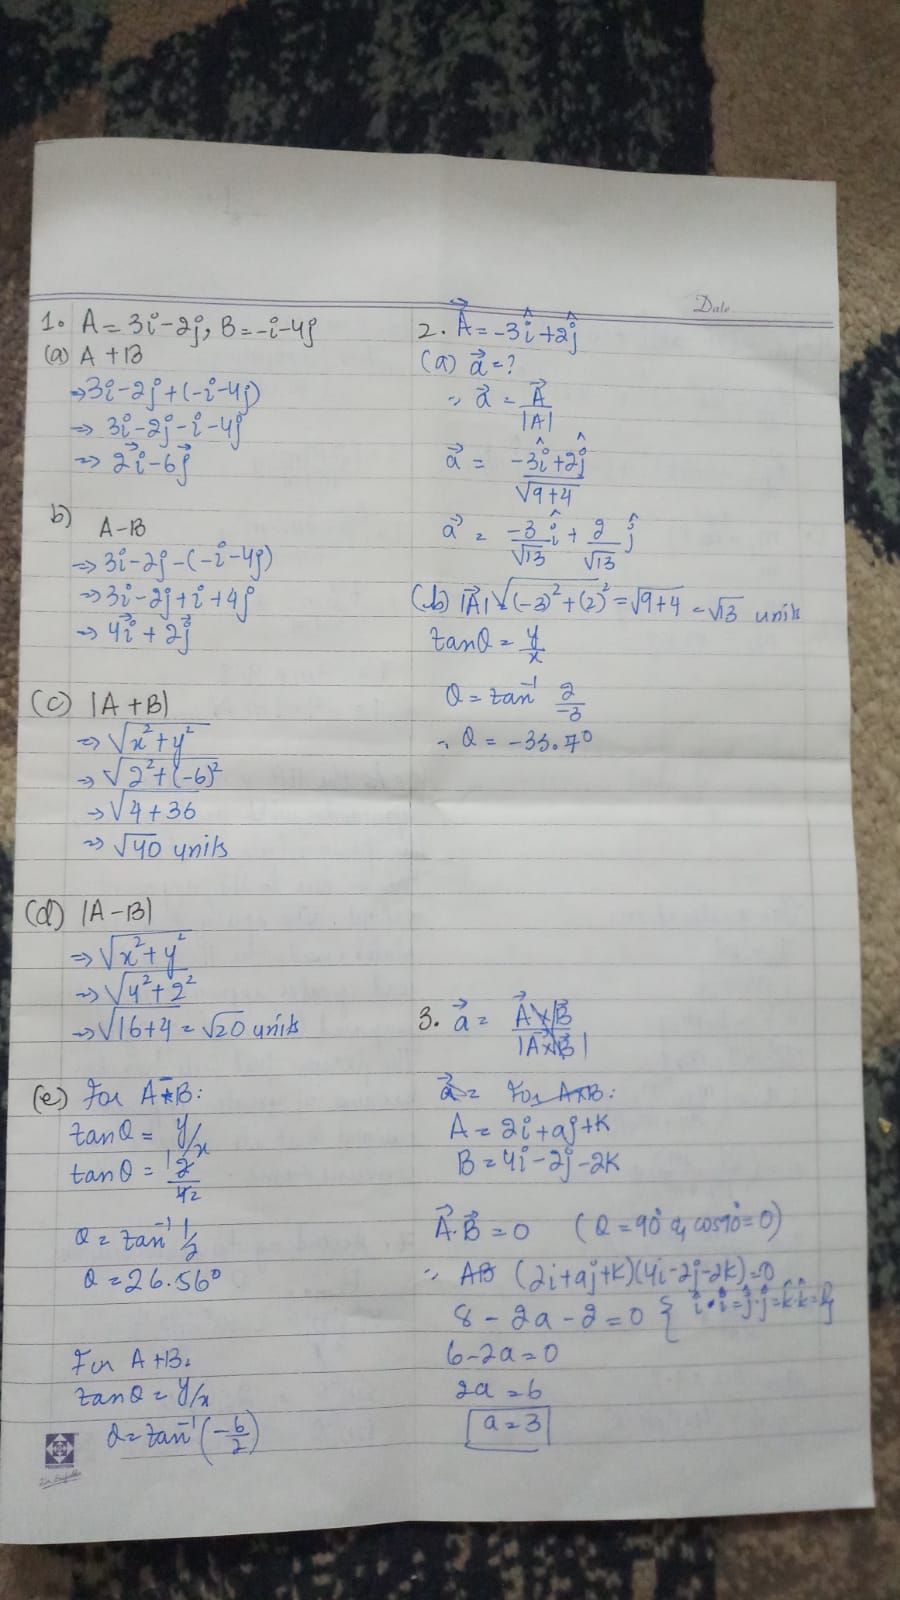 Date
1. A = 3i-2j, B = -i-4j
(a) A+B
⇒ 3i-2j+(-i-4j)
⇒ 3i-2j-i-4j
⇒ 2i-6j
b) A-B
⇒ 3i-2j-(-i-4j)
⇒ 3i-2j+i+4j
⇒ 4i+2j
(c) |A+B|
⇒ √x²+y²
⇒ √2²+(-6)²
⇒ √4+36
⇒ √40 units
(d) |A-B|
⇒ √x²+y²
⇒ √4²+2²
⇒ √16+4 = √20 units
(e) For A-B:
tanθ = y/x
tanθ = 2/4
θ = tan⁻¹ 1/2
θ = 26.56°
For A+B:
tanθ = y/x
θ = tan⁻¹(-6/2)
2. A⃗ = -3î+2ĵ
(a) a⃗ = ?
∴ a⃗ = A⃗/|A|
a⃗ = -3î+2ĵ/√9+4
a⃗ = -3/√13 î + 2/√13 ĵ
(b) |A⃗| √(-3)²+(2)² = √9+4 = √13 units
tanθ = y/x
θ = tan⁻¹ 2/-3
∴ θ = -33.7°
3. a⃗ = A⃗×B⃗/|A⃗×B⃗|
a⃗ = For A×B:
A = 2i+aj+k
B = 4i-2j-2k
A⃗.B⃗ = 0 (θ = 90° & cos90° = 0)
∴ AB (2i+aj+k)(4i-2j-2k) = 0
8-2a-2=0 { î.î = ĵ.ĵ = k̂.k̂ =
6-2a=0
2a=6
a=3